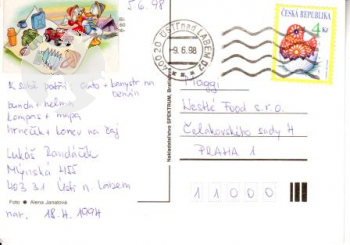 5.6.98
400 20 ÚSTÍ nad LABEM 02
-9.6.98
ČESKÁ REPUBLIKA
4 Kč
K sobě patří: auto + kanystr na
benzín
bunda + helma
kompas + mapa
hrneček + konev na čaj
Lukáš
Mlýnská 455
403 31 Ústí n. Labem
nar. 18.4.1994
Foto • Alena Janatová
Nakladatelství SPEKTRUM,
Maggi
Nestlé Food s.r.o.
Čelakovského sady 4
PRAHA 1
11000